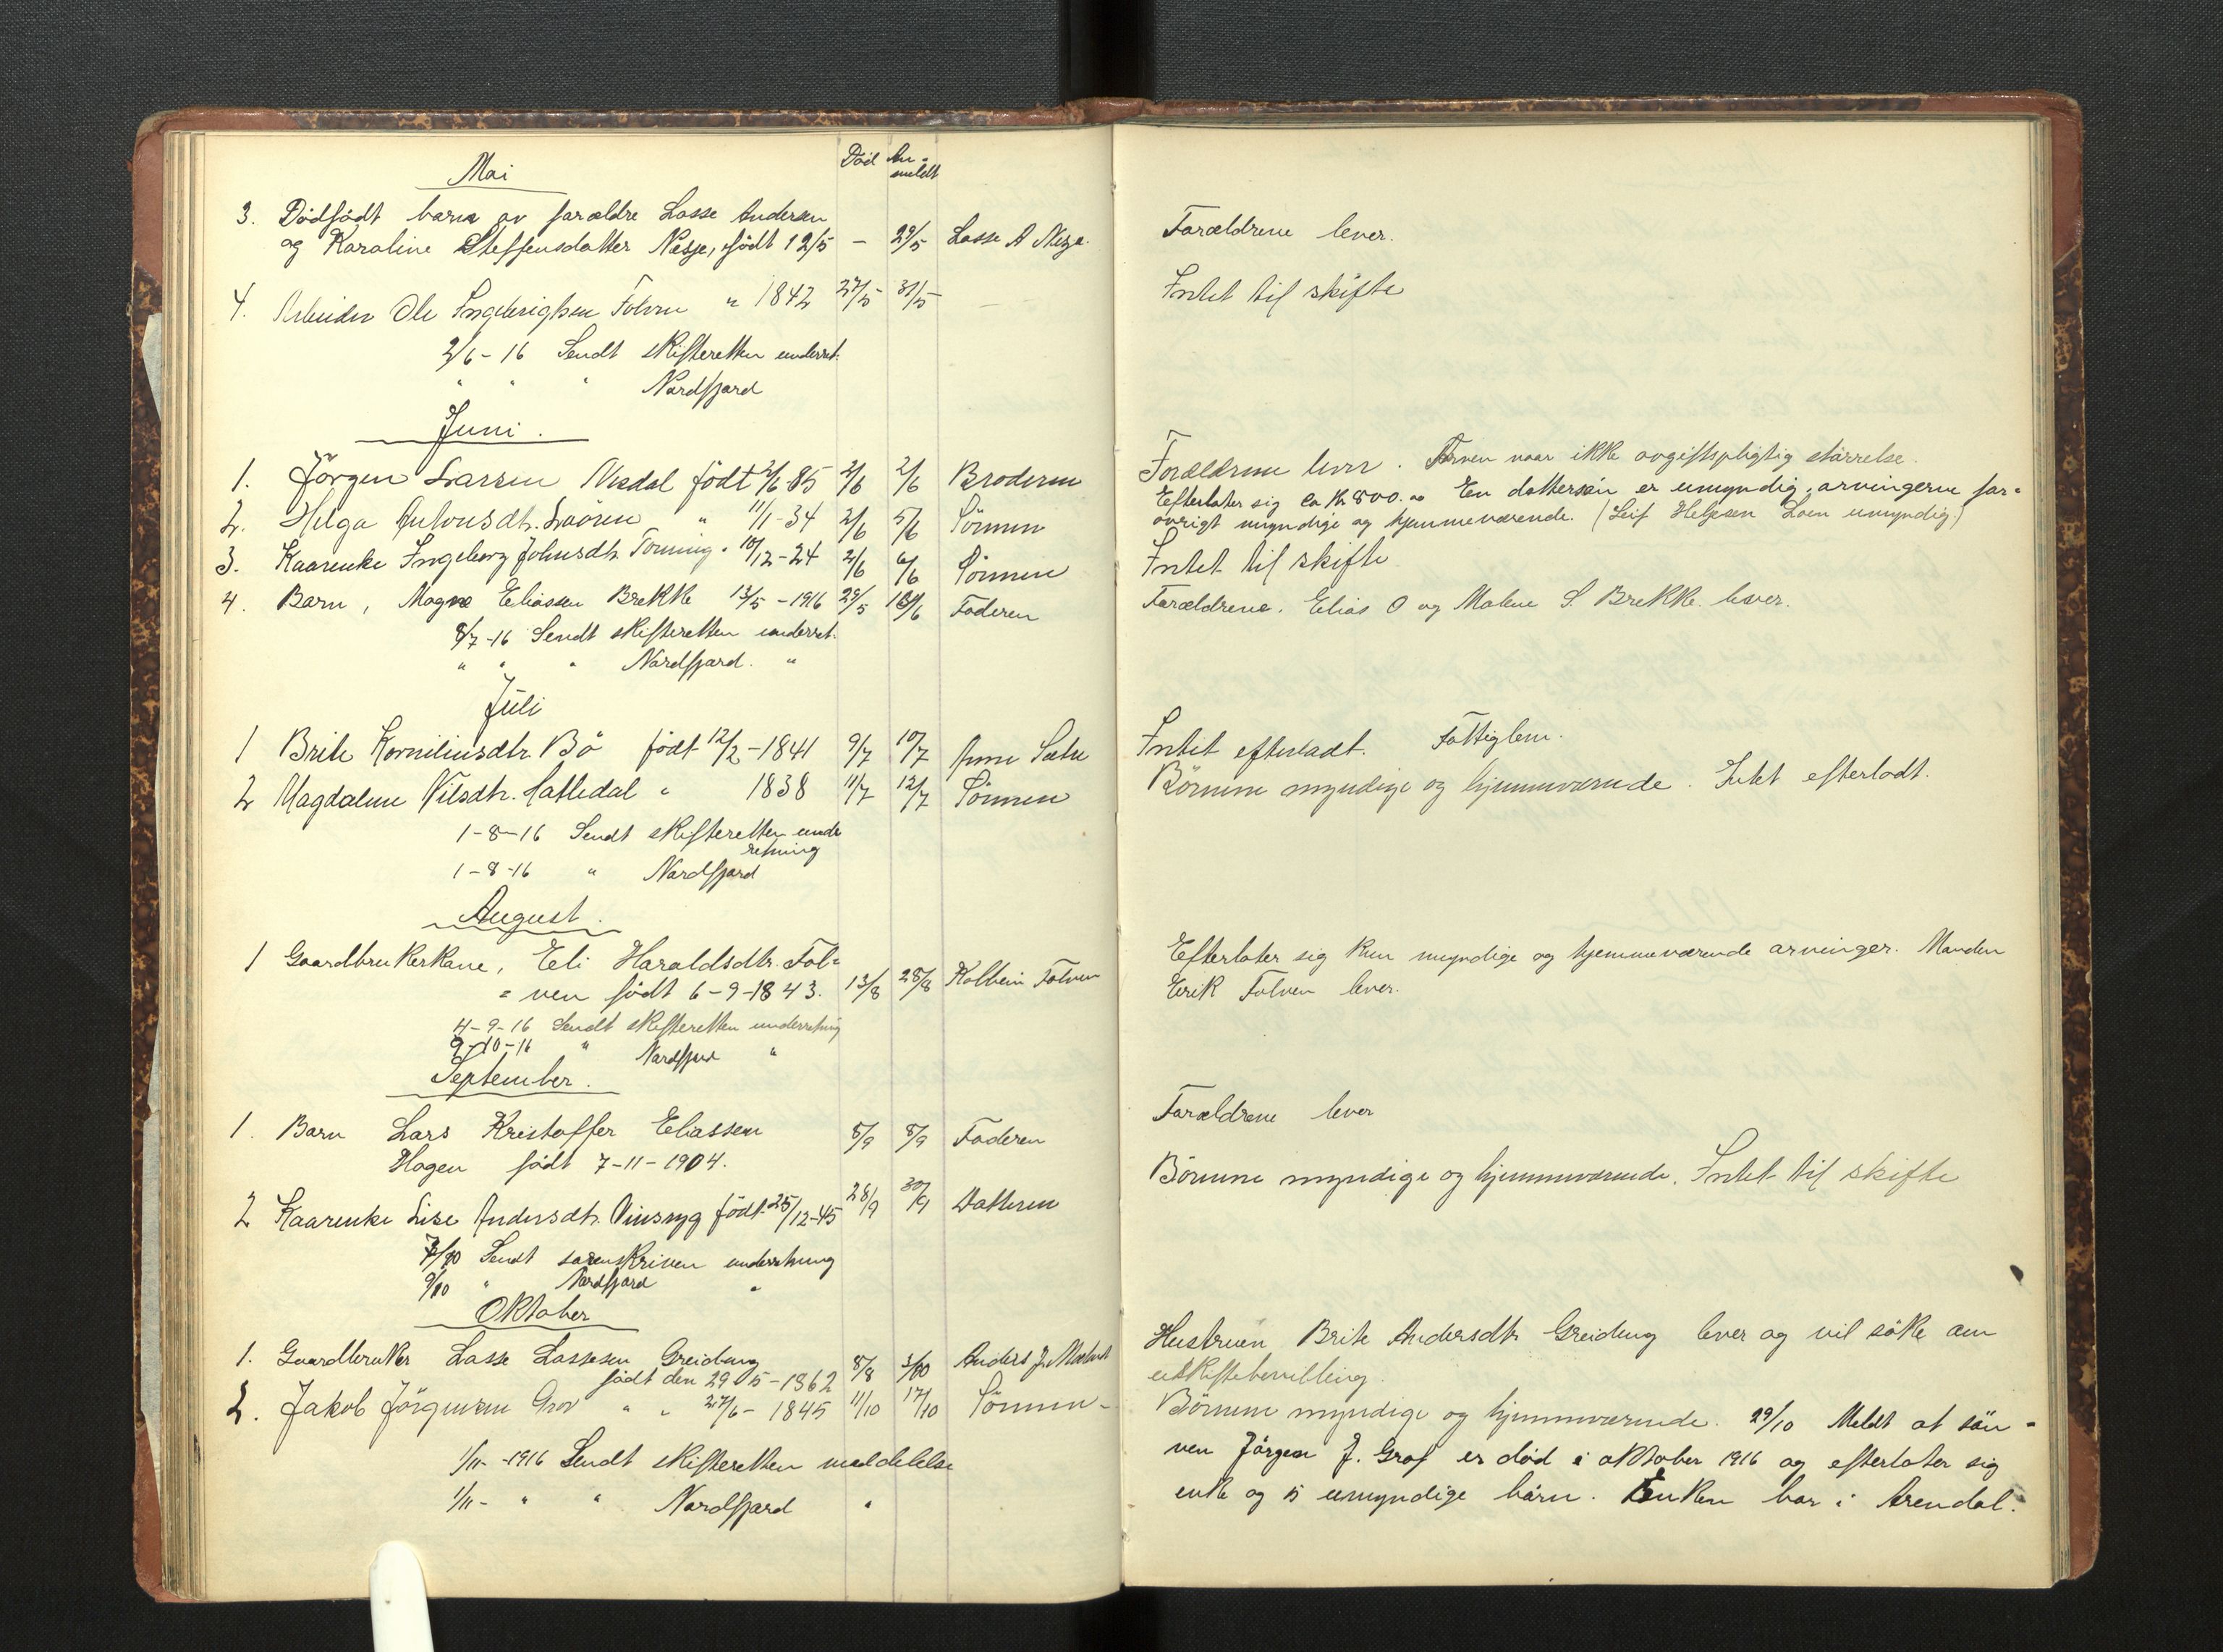 Mai
Död An-
meldt
3. Dödfödt barn av forældre Lasse Andersen
og Karoline Steffensdatter Nesje, födt 12/5 – 29/5 Lasse A Nesje.
4. Arbeider Ole Ingebrigtsen Folven " 1842 27/5 31/5 –
2/6 - 16 Sendt skifteretten underret.
" " " Nordfjord
Juni.
1. Jörgen Larsen Nesdal födt 2/6 85 2/6 2/6 Broderen
2. Helga Antonsdtr. Loören " 11/1 - 34 2/6 5/6 Sönnen
3. Kaarenke Ingeborg Johnsdtr. Tonning " 10/12 - 24 2/6 6/6 Sönnen
4. Barn, Magne Eliassen Brekke 13/5 - 1916 29/5 10/6 Faderen
8/7 -16 Sendt skifteretten underret.
" " " Nordfjord. "
Juli
1 Brite Korneliusdtr. Bö födt 12/2 - 1841 9/7 10/7 Anne Sætre
2 Magdalene Nilsdtr. Hatledal " 1838 11/7 12/7 Sönnen
1 - 8 - 16 Sendt skifteretten unde
retning
1 - 8 - 16 " Nordfjord
August.
1 Gaardbrukerkone, Eli Haraldsdtr. Fol=
= ven födt 6 - 9 - 1843. 13/8 28/8 Kolbein Folven
4 - 9 - 16 Sendt skifteretten underretning
9 - 10 - 16 " Nordfjord "
September.
1. Barn Lars Kristoffer Eliassen 8/9 8/9 Faderen
Hagen födt 7 - 11 - 1904.
2 Kaarenke Lise Andersdtr. Vinsryg födt 25/12 - 45 28/9 30/9 Datteren
7/10 Sendt sorenskriven underretning
9/10 " Nordfjord "
Oktober
1. Gaardbruker Lasse Lassesen Greidung 8/8 3/10 Anders J.
födt den 29 5 - 1862
2. Jakob Jörgensen Grov " " 27/6 - 1845 11/10 17/10 Sönnen -
1/11 - 1916 Sendt skifteretten meddelelse
1/11 - " " Nordfjord "
Forældrene lever.
Intet til skifte
Forældrene lever. Arven naar ikke avgiftspligtig störrelse.
Efterlater sig ca Kr 800.00 En dattersön er umyndig, arvingerne for=
övrigt myndige og hjemmeværende. (Leif Helgesen Loen umyndig)
Intet til skifte
Forældrene. Elias O og Malene S. Brekke lever.
Intet efterladt. Fattiglem.
Börnene myndige og hjemmværende. Intet efterladt.
Efterlater sig kun myndige og hjemmeværende arvinger. Manden
Eirik Folven lever.
Forældrene lever
Börnene myndige og hjemmværende. Intet til skifte
Hustruen Brite Andersdtr Greidung lever og vil söke om
uskiftebevilling.
Börnene myndige og hjemmværende. 29/10 Meldt at sön -
nen Jörgen J. Grof er död i oktober 1916 og efterlater sig
enke og 5 umyndige börn. Enken bor i Arendal.